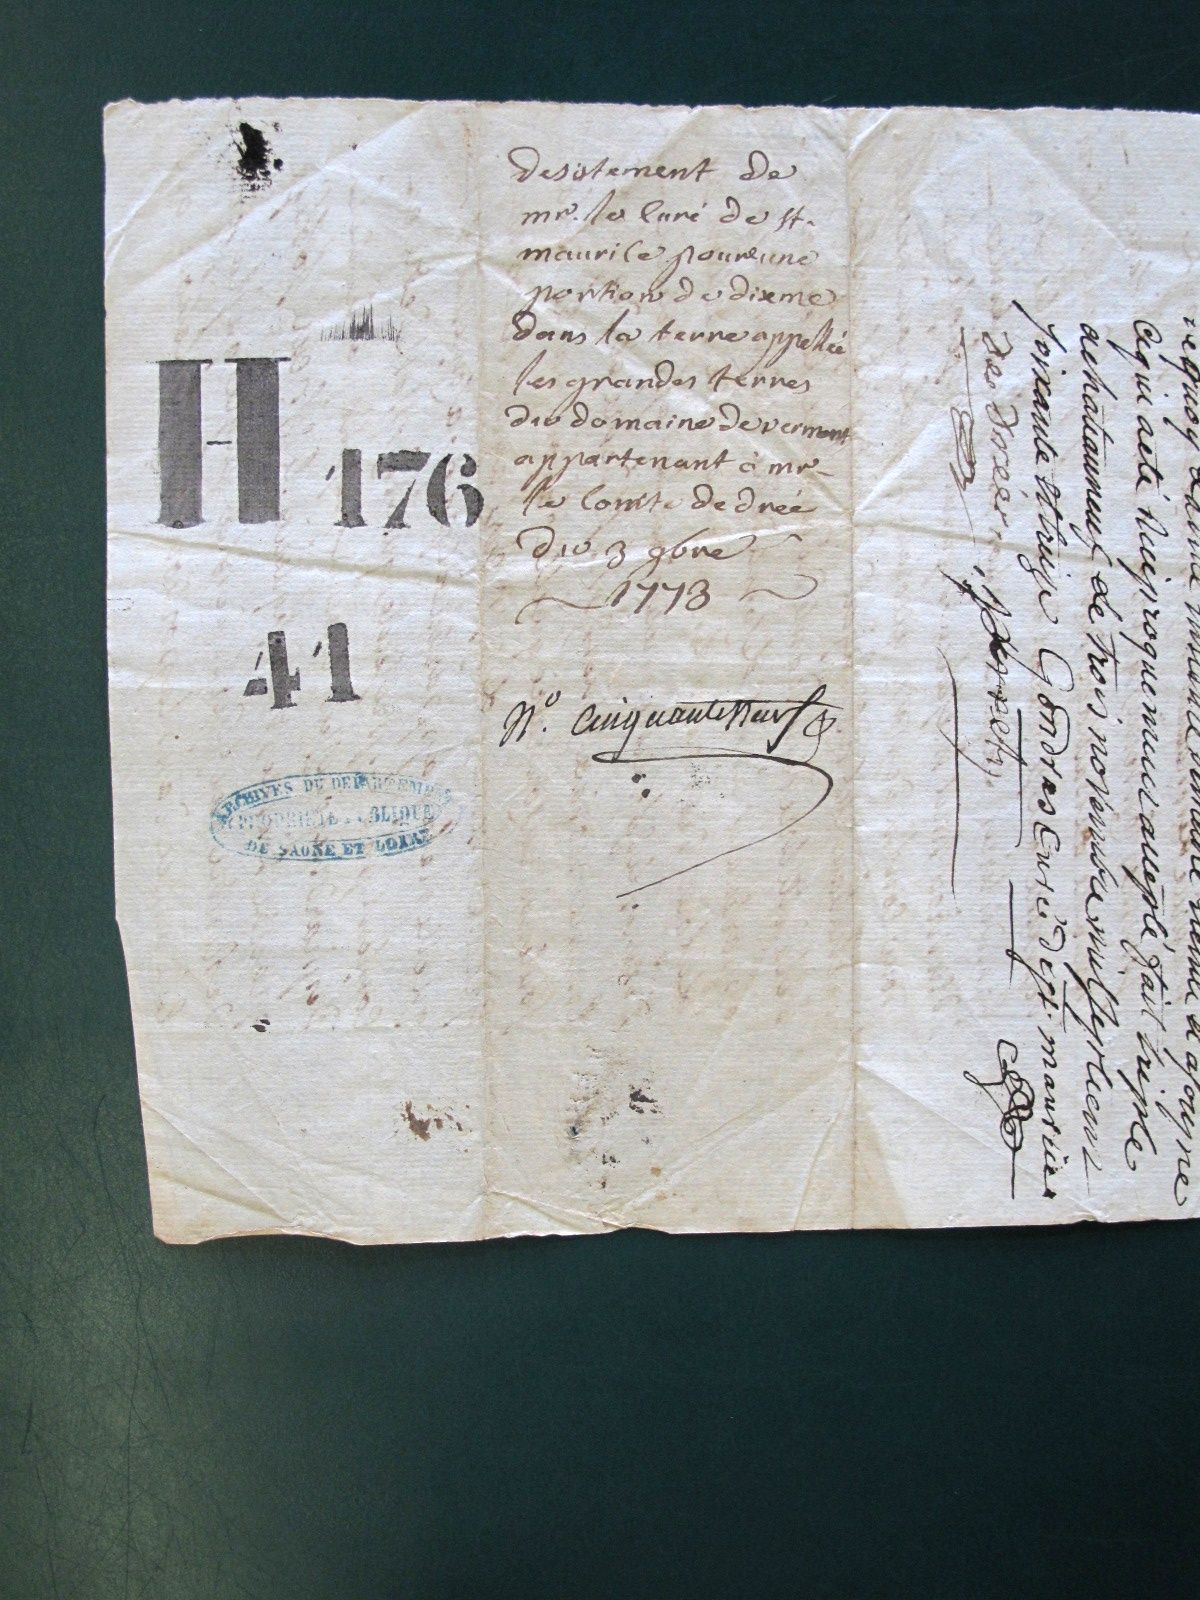 H 176
41
ARCHIVES DU DEPARTEMENT
PROPRIETE PUBLIQUE
DE SAONE ET LOIRE
desistement de
mr. le Curé de st.
maurice pour une
portion de dixme
dans la terre appellée
les grandes terres
du domaine de vermont
appartenant a mr
le Comte de drée
du 3 9bre
1773
N.o Cinquante neuf
Ce qui a eté Reciproquement accepté fait triple
a chateauneuf de trois novembre mil sept cent
soixante et treize Gondras Curé de st. maurice
de drée